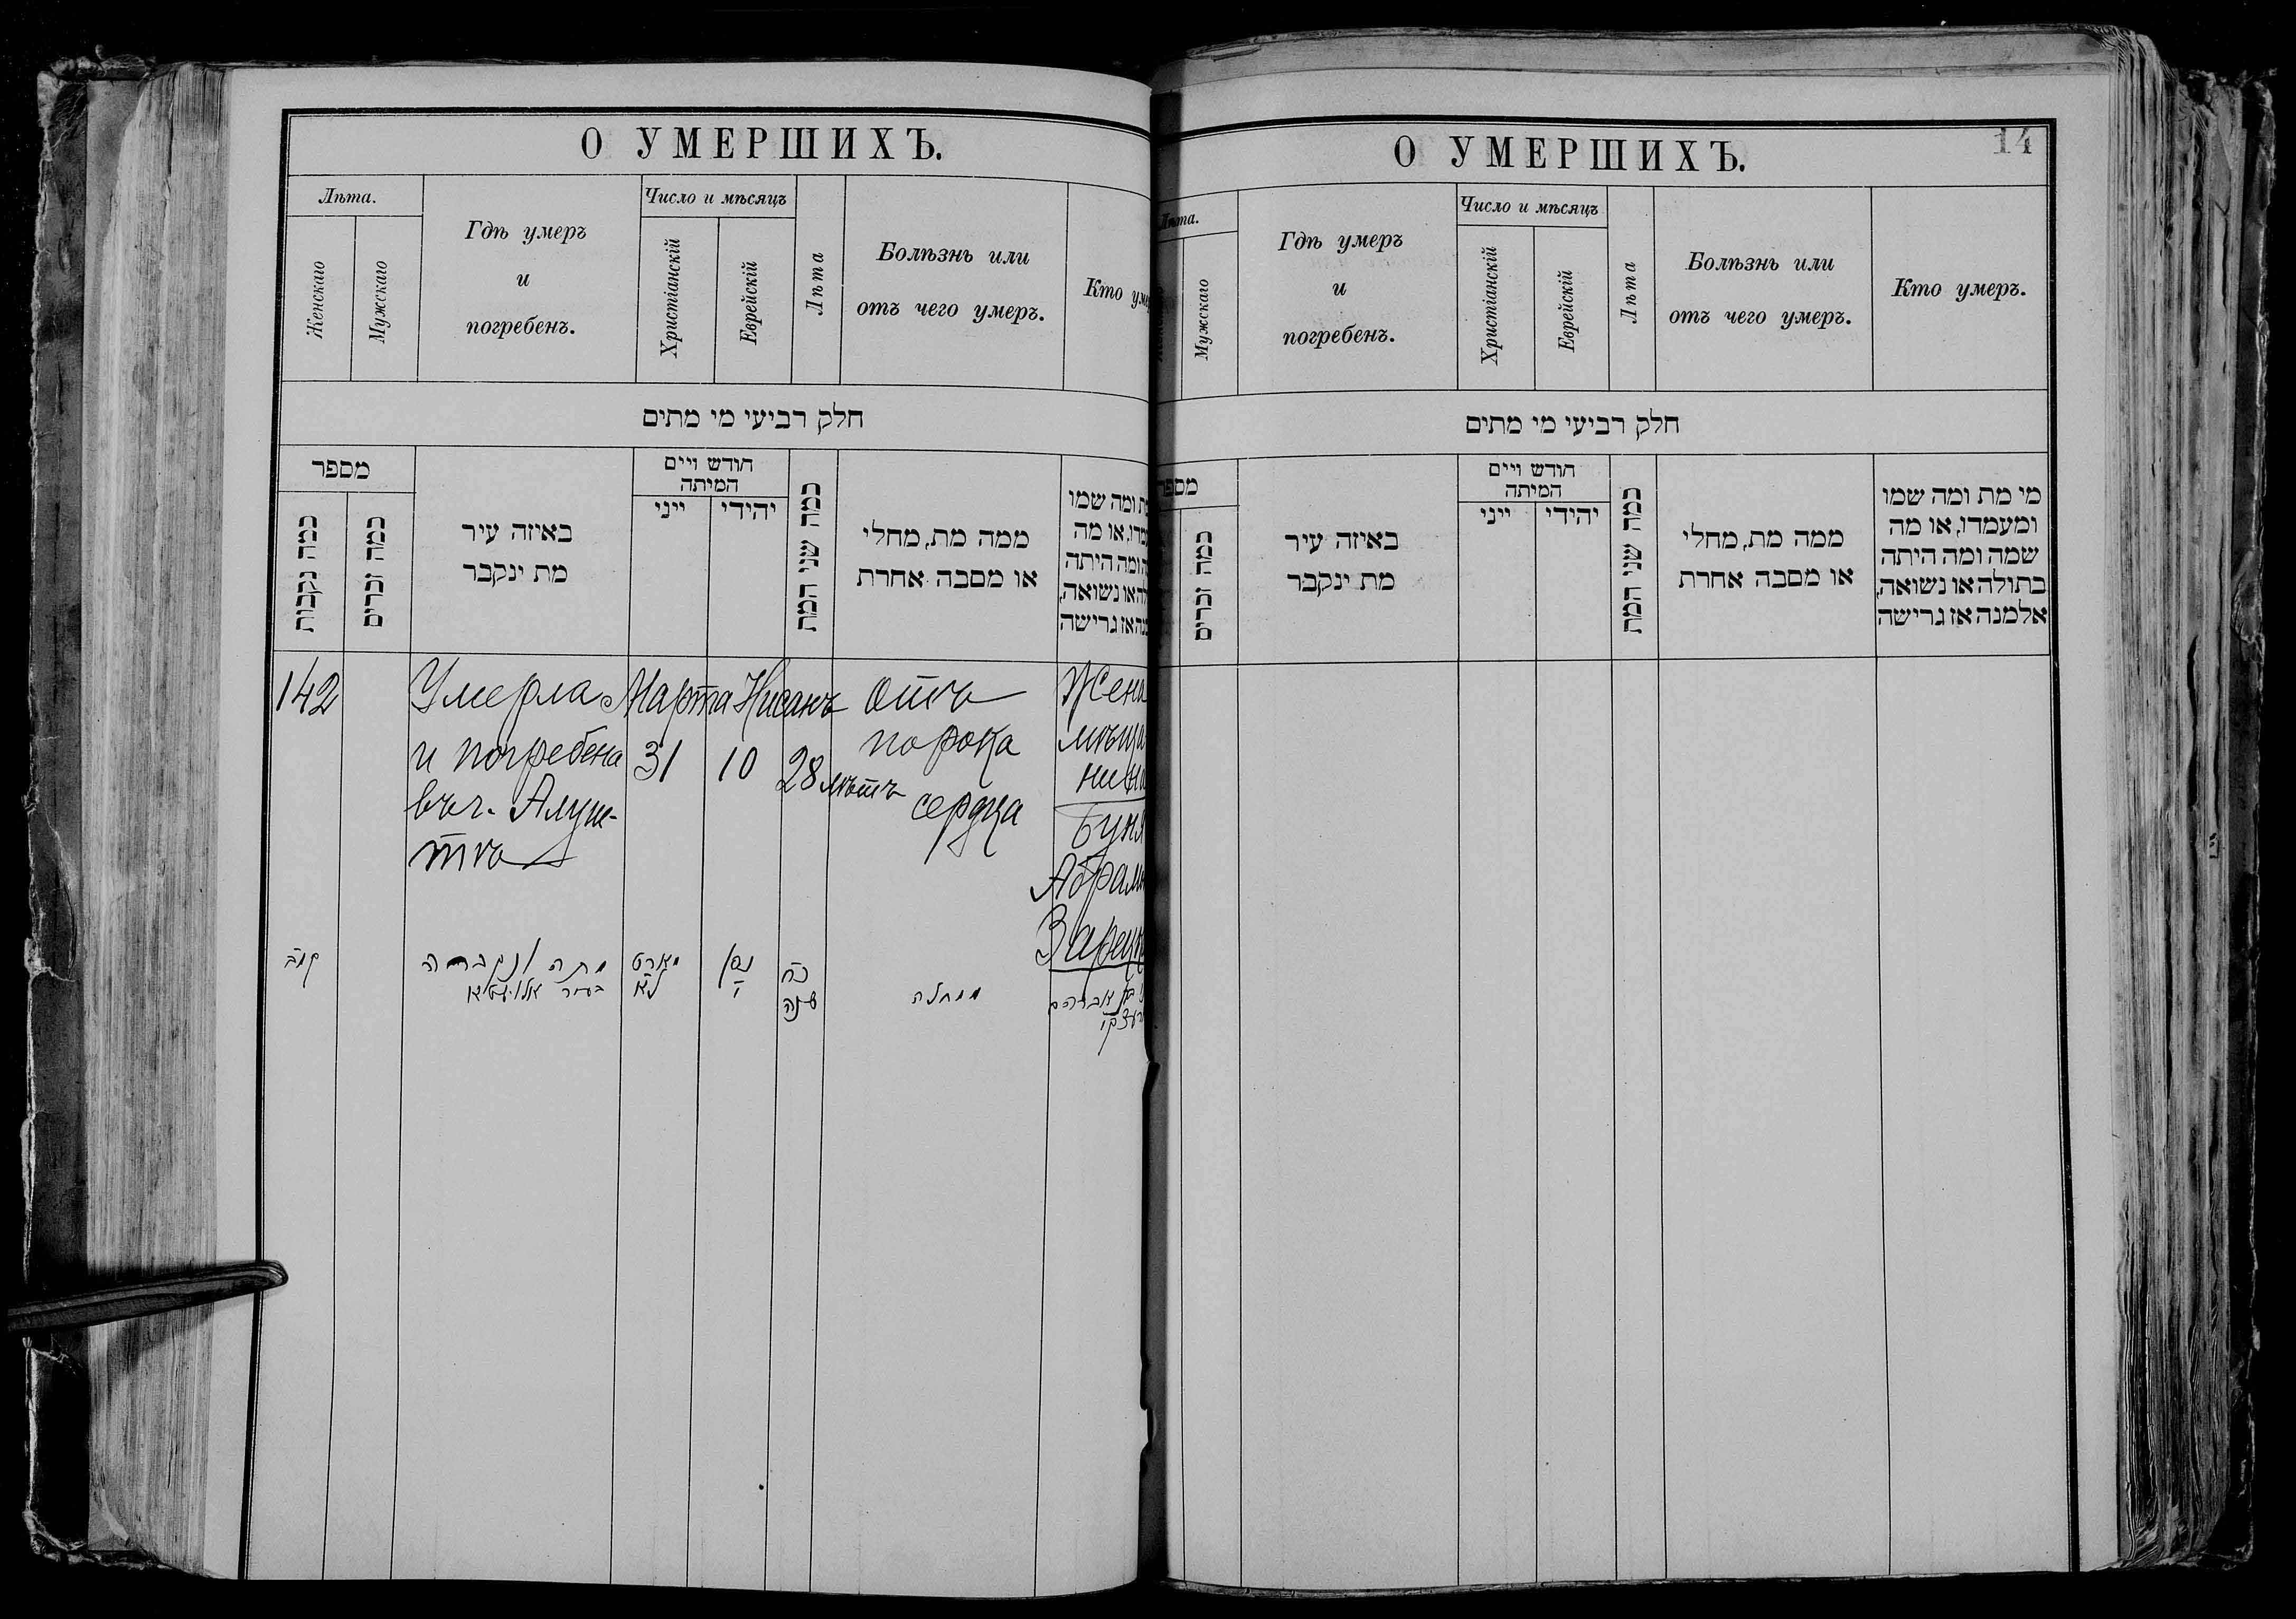 О УМЕРШИХЪ.
Лѣта.
Женскаго
Мужскаго
Гдѣ умеръ
и
погребенъ.
Число и мѣсяцъ
Христіанскій
Еврейскій
Лѣта
Болѣзнь или
отъ чего умеръ.
Кто уме
חלק רביעי מי מתים
מספר
כמה נקבות
כמה זכרים
באיזה עיר
מת ינקבר
חודש ויים
המיתה
ייני
יהודי
כמה שני המת
ממה מת, מחלי
או מסבה אחרת
ומה שמו
או מה
ומה היתה
או נשואה,
גרישה
142
Умерла
и погребена
въ г. Алуш-
тѣ
Марта
31
Нисанъ
10
28 лѣтъ
отъ
порока
сердца
Жена
мѣща
нина
Буня
Абрам
Зарец
קמב
מתה ונקברה
בעיר
מארט
לא
ניסן
י
כח
שנה
ממחלה
אברהם
О УМЕРШИХЪ.
14
Лѣта.
Мужскаго
Гдѣ умеръ
и
погребенъ.
Число и мѣсяцъ
Христіанскій
Еврейскій
Лѣта
Болѣзнь или
отъ чего умеръ.
Кто умеръ.
חלק רביעי מי מתים
מספר
כמה זכרים
באיזה עיר
מת ינקבר
חודש ויים
המיתה
ייני
יהודי
כמה שני המת
ממה מת, מחלי
או מסבה אחרת
מי מת ומה שמו
ומעמדו, או מה
שמה ומה היתה
בתולה או נשואה,
אלמנה אז גרישה